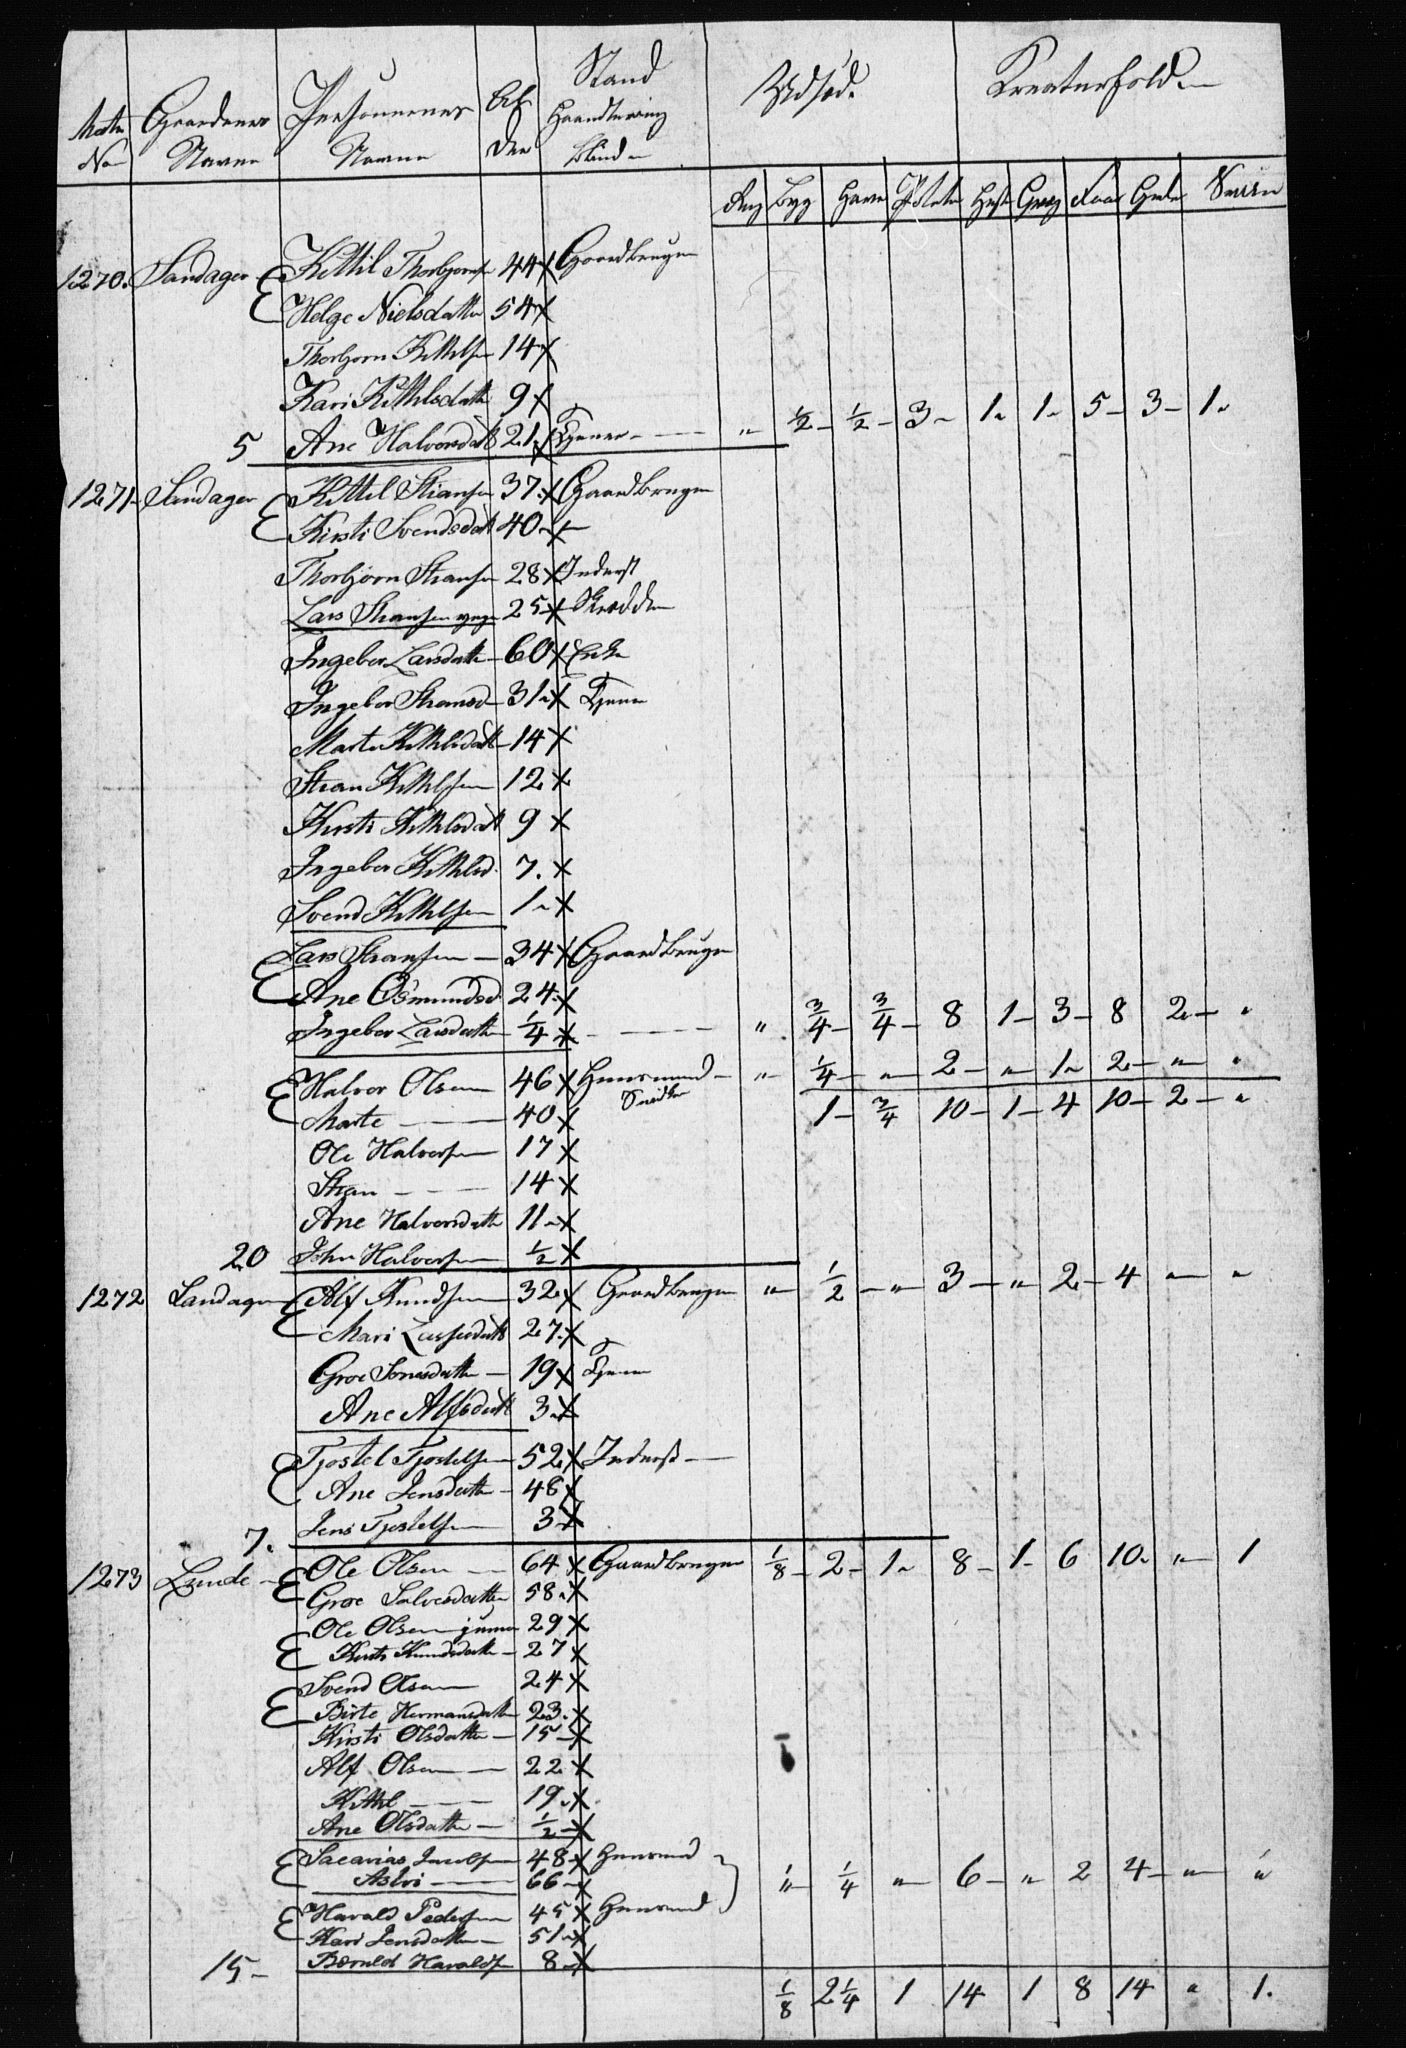 Matr No Gaardenes Navne Personnernes Navne Alder Stand Haandtering Blind Udsæd Kreaturhold
Rug Byg Havre Poteter Hest Queg Faar Geder Sviin
1270. Sandager Kittil Thorbjørnsen 44 x Gaardbruger
Helge Nielsdatter 54 x
Thorbjørn Kittilsen 14 x
Kari Kittilsdatter 9 x
5 Ane Halvorsdatt 21 x Tjener — " ½ – ½ – 3 – 1 – 1 – 5 – 3 – 1 "
1271 Sandager Kittil Stiansen 37 x Gaardbruger
Kirsti Svendsdatt 40 x
Thorbjørn Stiansen 28 x Inderst
Lars Stiansen yngre 25 x Skrædder
Ingebor Larsdatter 60 x Enke
Ingebor Stiansd 31 x Tjener
Marte Kittilsdatt 14 x
Stian Kittilsen 12 x
Kirsti Kittilsdatt 9 x
Ingebor Kittilsd. 7. x
Svend Kittilsen 1 x
Lars Stiansen 34 x Gaardbruger
Ane Osmundsd. 24 x
Ingebor Larsdatter ¼ x — " ¾ – ¾ – 8 1 – 3 – 8 2 – "
Halvor Olsen 46 x Huusmand – " ¼ – " 2 – " 1 2 – " "
Smidker
Marte — 40 x 1 – ¾ 10 – 1 – 4 10 – 2 – "
Ole Halvorsen 17 x
Stian — 14 x
Ane Halvorsdatter 11 x
20 John Halvorsen ½ x
1272 Sandager Alf Knudsen 32 x Gaardbruger " ½ – " 3 – " 2 – 4 " "
Mari 27 x
Groe Jonsdatter 19 x Tjener
Ane Alfsdatt 3 x
Tjostel Tjostelsen 52 x Inderst —
Ane Jensdatter 48 x
7. Jens Tjostelsen 3 x
1273 Lunde Ole Olsen 64 x Gaardbruger ⅛ – 2 – 1 8 – 1 – 6 10 " 1
Groe Salvesdatter 58 x
Ole Olsen junior 29 x
Kirsti Knudsdatter 27 x
Svend Olsen 24 x
Birte Hermansdatter 23. x
Kirsti Olsdatter 15 x
Alf Olsen 22 x
Kittil — 19 x
Ane Olsdatter ½ x
Sacarias Jacobsen 48 x Huusmand
Aslvi — 66 x " ¼ " 6 – " 2 4 – " "
Harald Pedersen 45 x Huusmand
Kari Jensdatter 51 x
15 – Bærnld Haraldsen 8 x
⅛ 2¼ 1 14 1 8 14 " 1.